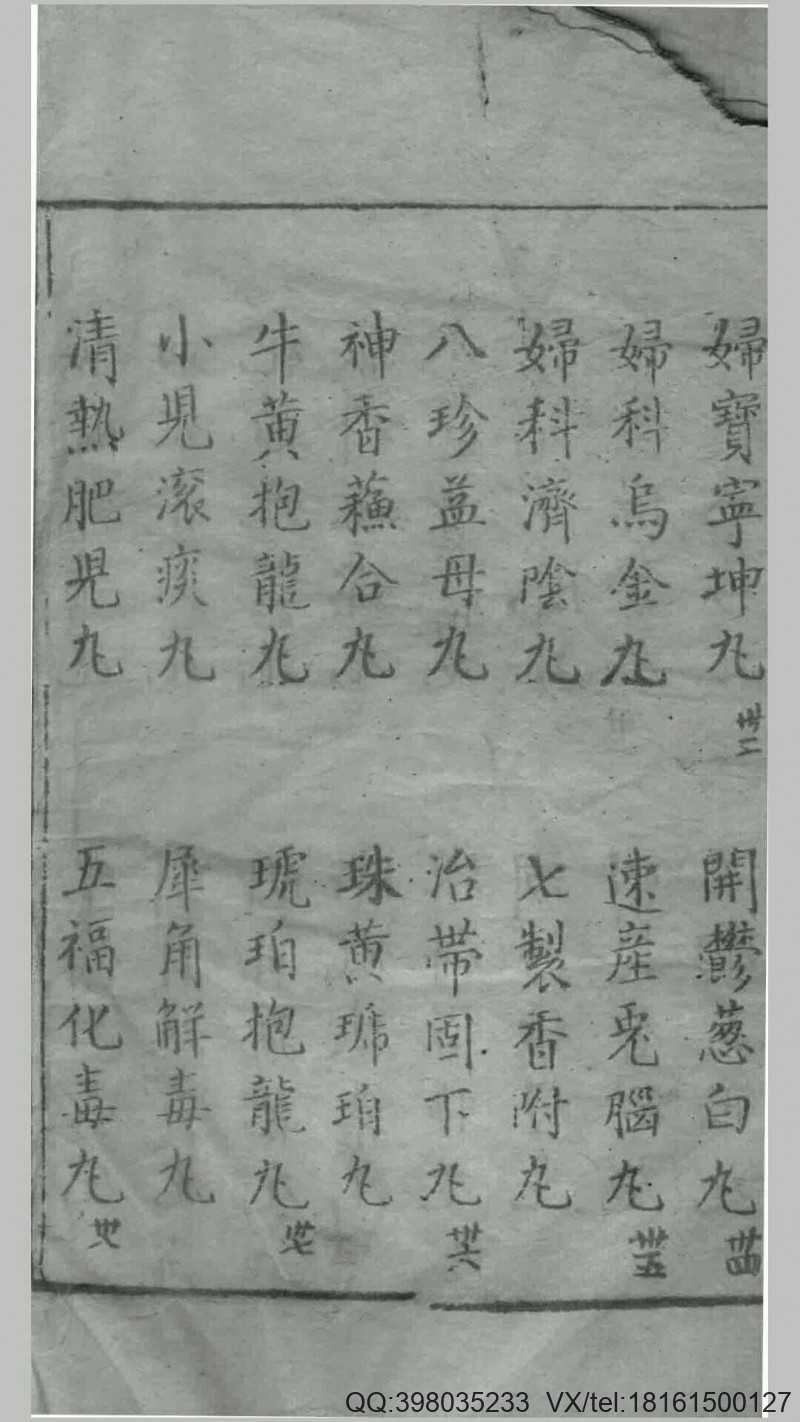 婦寶寧坤丸 卅二
婦科烏金丸
婦科濟陰丸
八珍益母丸
神香蘓合丸
牛黄抱龍丸
小児滚痰丸
清熱肥児丸
開鬱葱白丸 卅四
速産兎腦丸 卅五
七製香附丸
治帶固下丸 卅六
珠黄琥珀丸
琥珀抱龍丸 卅七
犀角解毒丸
五福化毒丸 卅八
QQ:398035233 VX/tel:18161500127